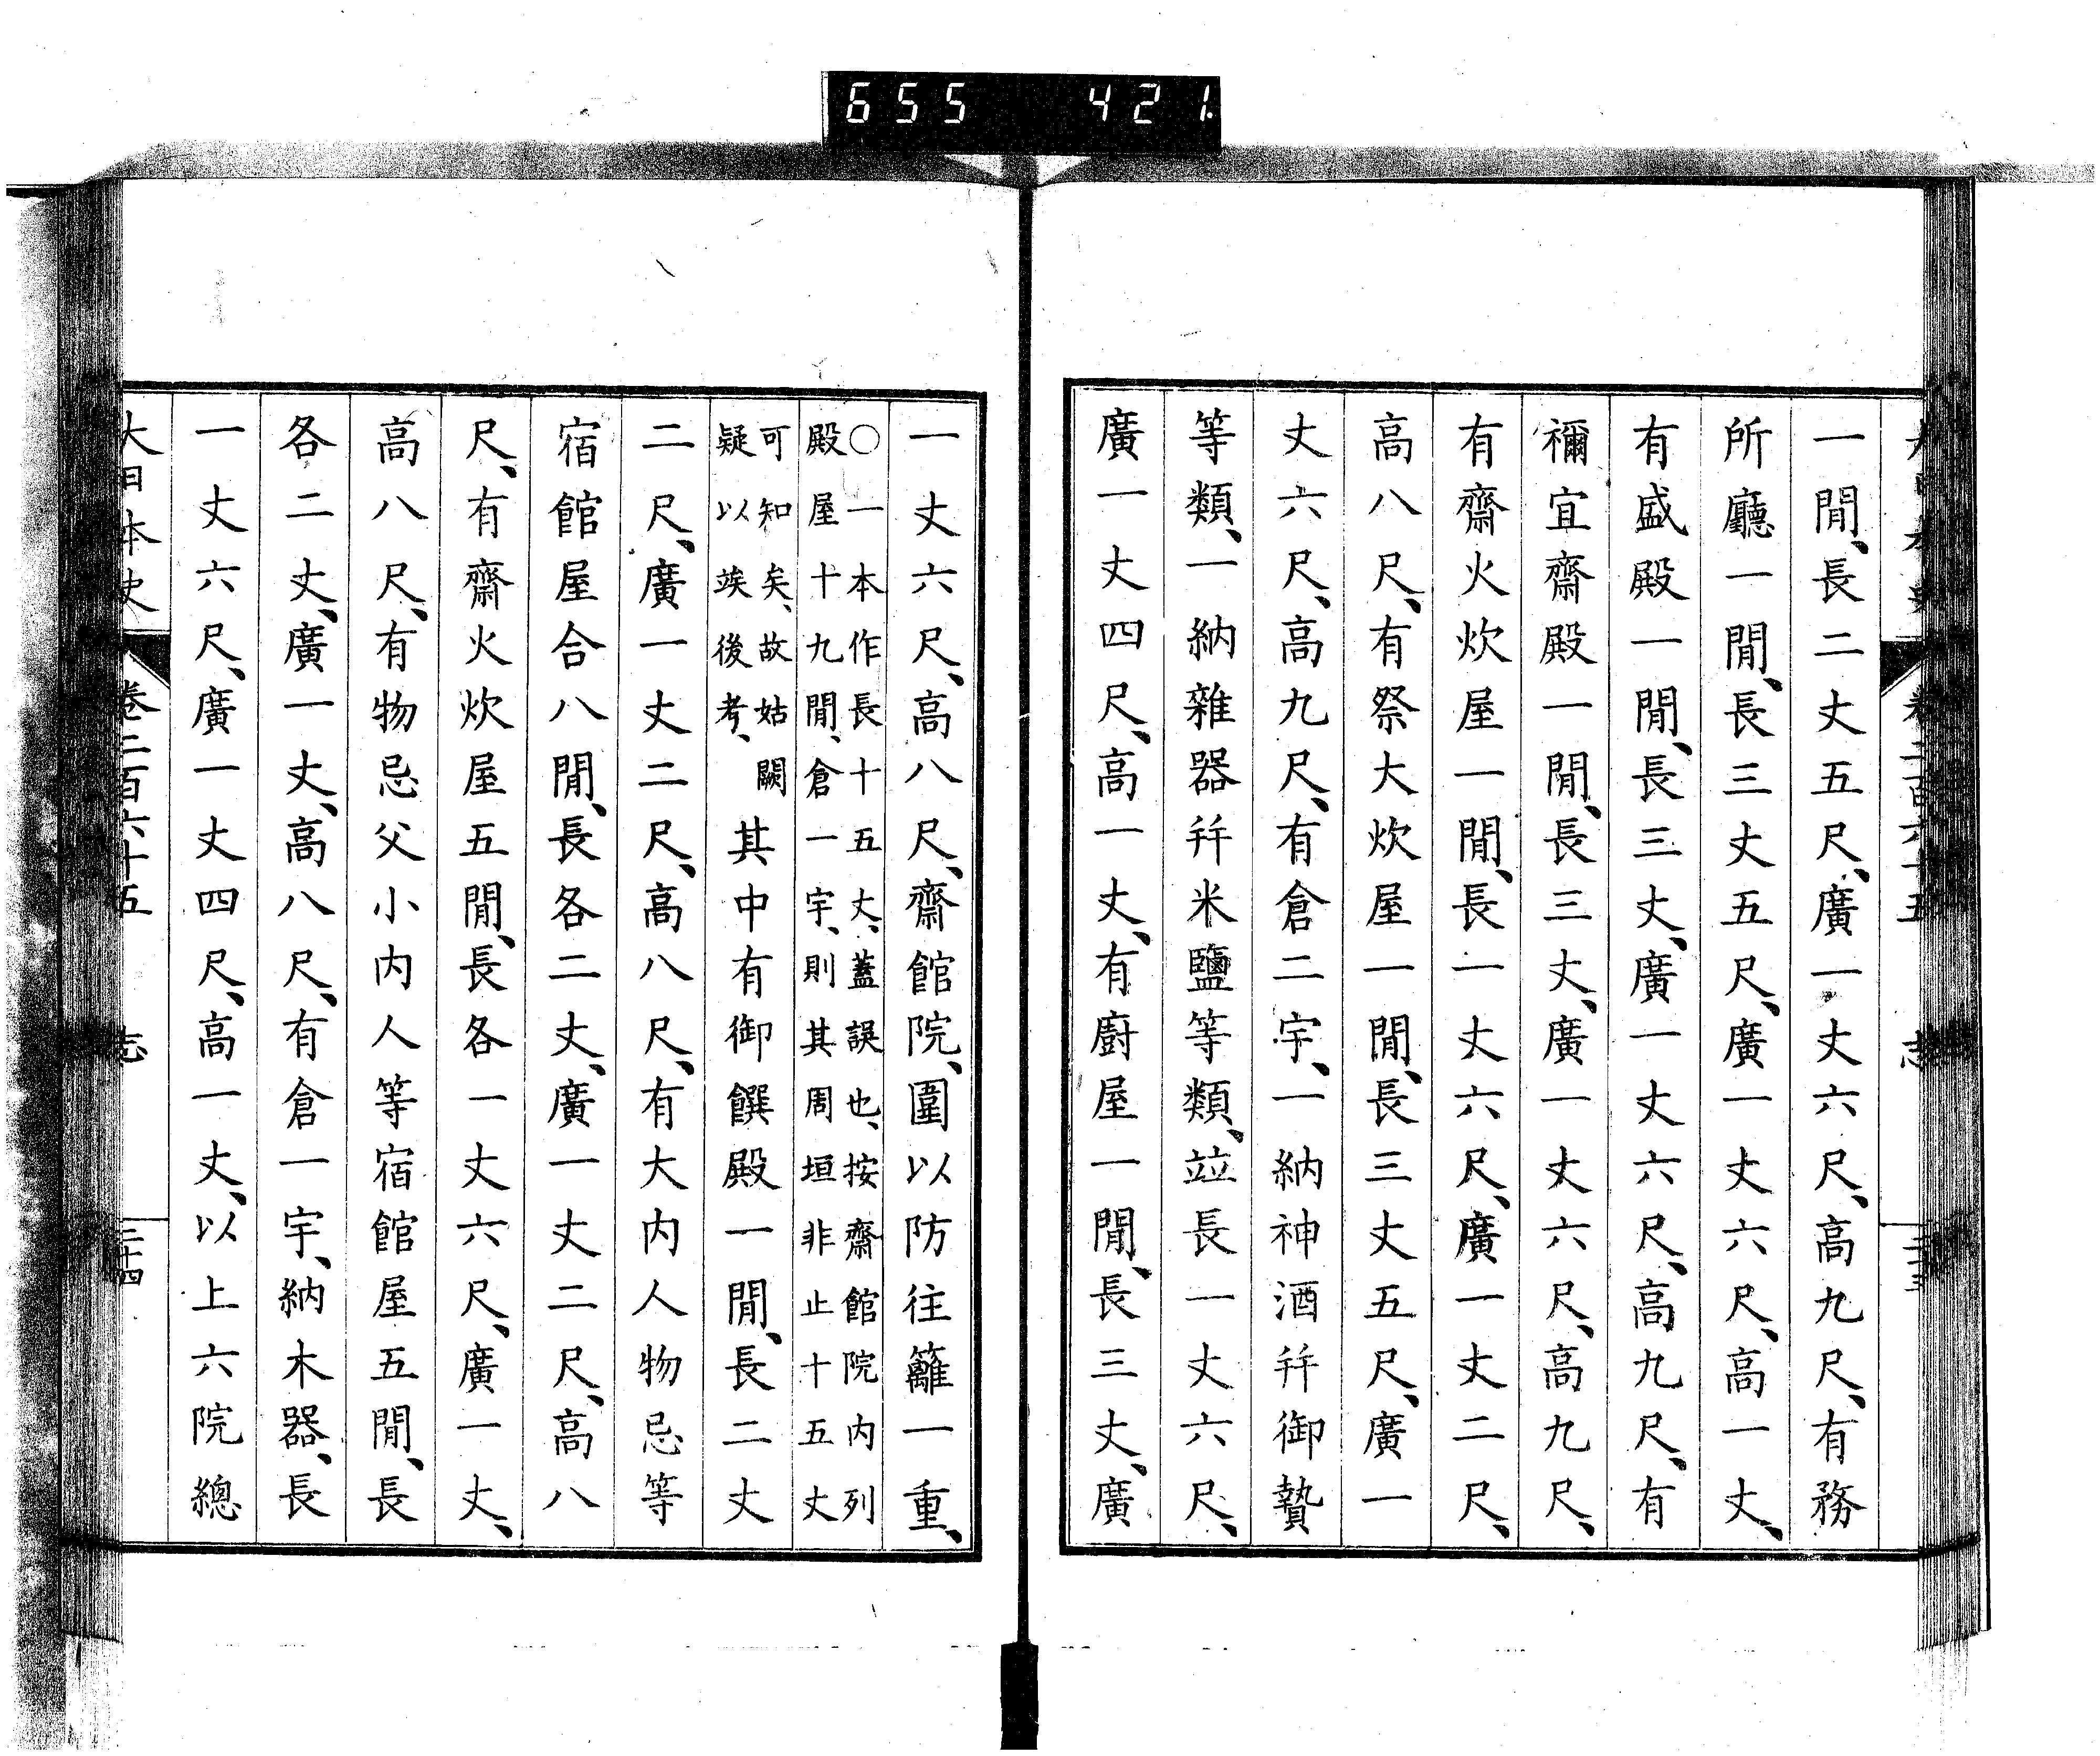 655 421
一閒、長二丈五尺、廣一丈六尺、高九尺、有務
所廳一閒、長三丈五尺、廣一丈六尺、高一丈、
有盛殿一閒、長三丈、廣一丈六尺、高九尺、有
禰宜齋殿一閒、長三丈、廣一丈六尺、高九尺、
有齋火炊屋一閒、長一丈六尺、廣一丈二尺、
高八尺、有祭大炊屋一閒、長三丈五尺、廣一
丈六尺、高九尺、有倉二宇、一納神酒幷御贄
等類、一納雜器幷米鹽等類、竝長一丈六尺、
廣一丈四尺、高一丈、有廚屋一閒、長三丈、廣
一丈六尺、高八尺、齋館院、圍以防往籬一重、
○一本作長十五丈、蓋誤也、按齋館院内列
殿屋十九閒、倉一宇、則其周垣非止十五丈
可知矣、故姑闕
疑以竢後考、
其中有御饌殿一閒、長二丈
二尺、廣一丈二尺、高八尺、有大内人物忌等
宿館屋合八閒、長各二丈、廣一丈二尺、高八
尺、有齋火炊屋五閒、長各一丈六尺、廣一丈、
高八尺、有物忌父小内人等宿館屋五閒、長
各二丈、廣一丈、高八尺、有倉一宇、納木器、長
一丈六尺、廣一丈四尺、高一丈、以上六院總
大日本史 卷二百六十五 志 三十四